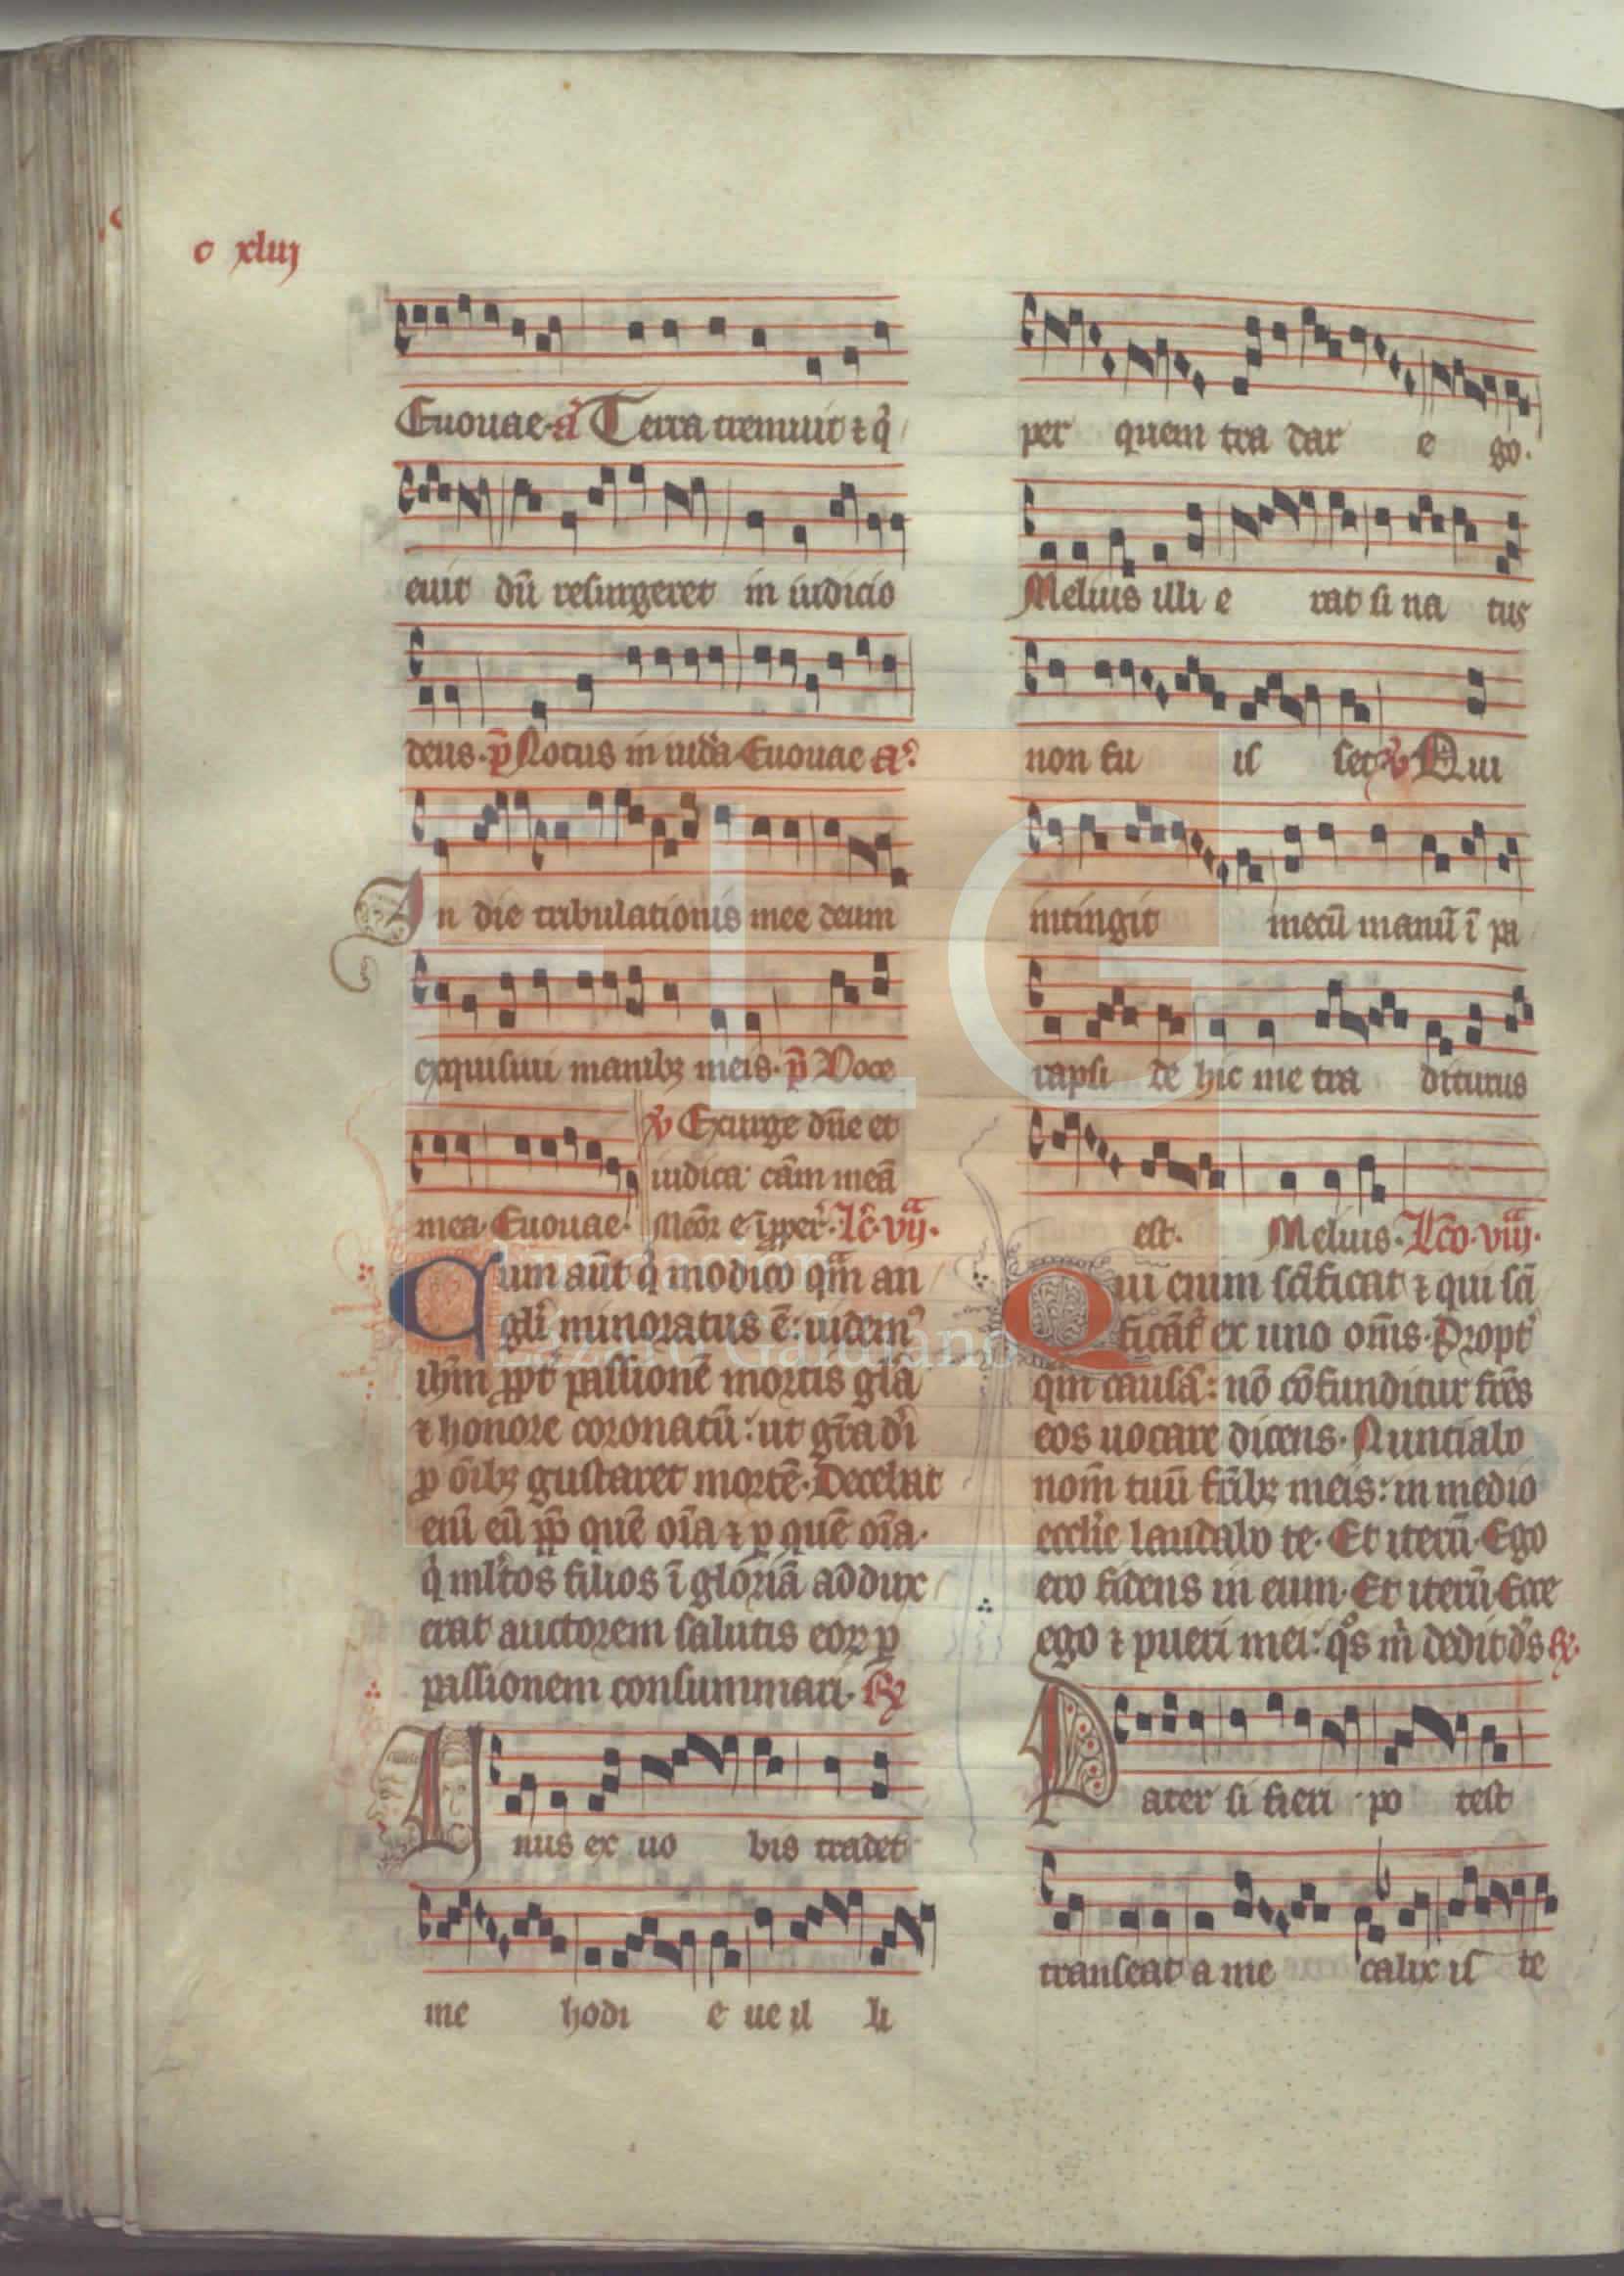 c xliij
Euouae. a Terra tremuit ⁊ q̇
euit dū resurgeret in iudicio
deus. p̄ Notus in iudea Euouae a
In die tribulationis mee deum
exquisiui manibꝫ meis. p̄ Voce
mea. Euouae.
℣ Exurge dn̄e et
iudica cām meā
Lc̄. vij.
Cum aūt q̇ modico qm̄ an
gli minoratus ē: uidem
ihm̄ ꝓpt passionē mortis glā
⁊ honore coronatū: ut gr̄a di
p oīb gustaret mortē. Decebat
eni eū ꝓp quē oīa ⁊ ꝑ quē oīa.
q̇ ml̄tos filios ī gloriā addux
erat auctorem salutis eoꝝ ꝑ
passionem consummari. ℟
Unus ex uo bis tradet
me hodi e ue il li
per quem tra dar e go.
Melius illi e rat si na tus
non fu is set ℣ Qui
intingit mecū manū ī pa
rapsi de hic me tra diturus
est. Melius. Lc̄o. viij.
Qui enim sc̄ificat ⁊ qui sc̄i
ficāt ex uno om̄s. Propt
qm̄ causā: nō cōfunditur fr̄es
eos uocare dicens. Nuntiabo
nom̄ tuū fr̄ibꝫ meis: in medio
eccl̄ie laudabo te. Et iterū. Ego
ero fidens in eum. Et iterū. Ecce
ego ⁊ pueri mei: qͦs m̄ dedit ds ℟.
Pater si fieri po test
transeat a me calix is te
FLG
Fundación
Lázaro Galdiano